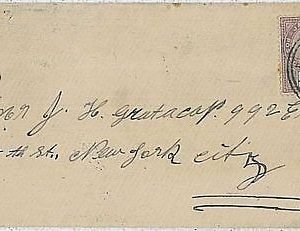 Mr J. H. Gratacap. 992 E
th st. New York City